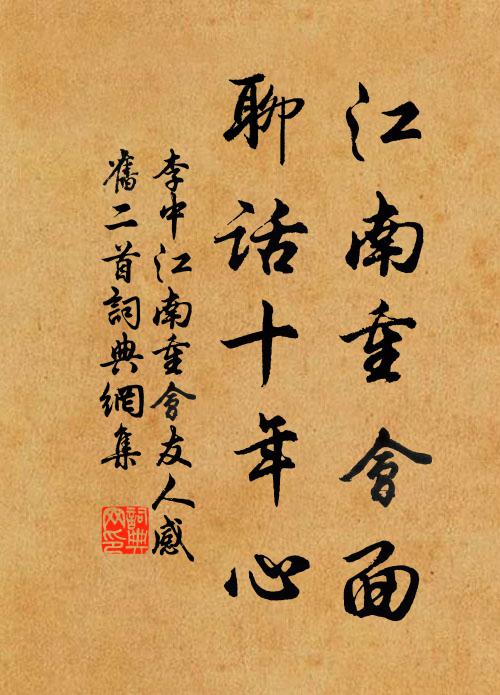 江南重會面
聊話十年心
李中江南重會友人感
舊二首詞典網集
詞典
网印